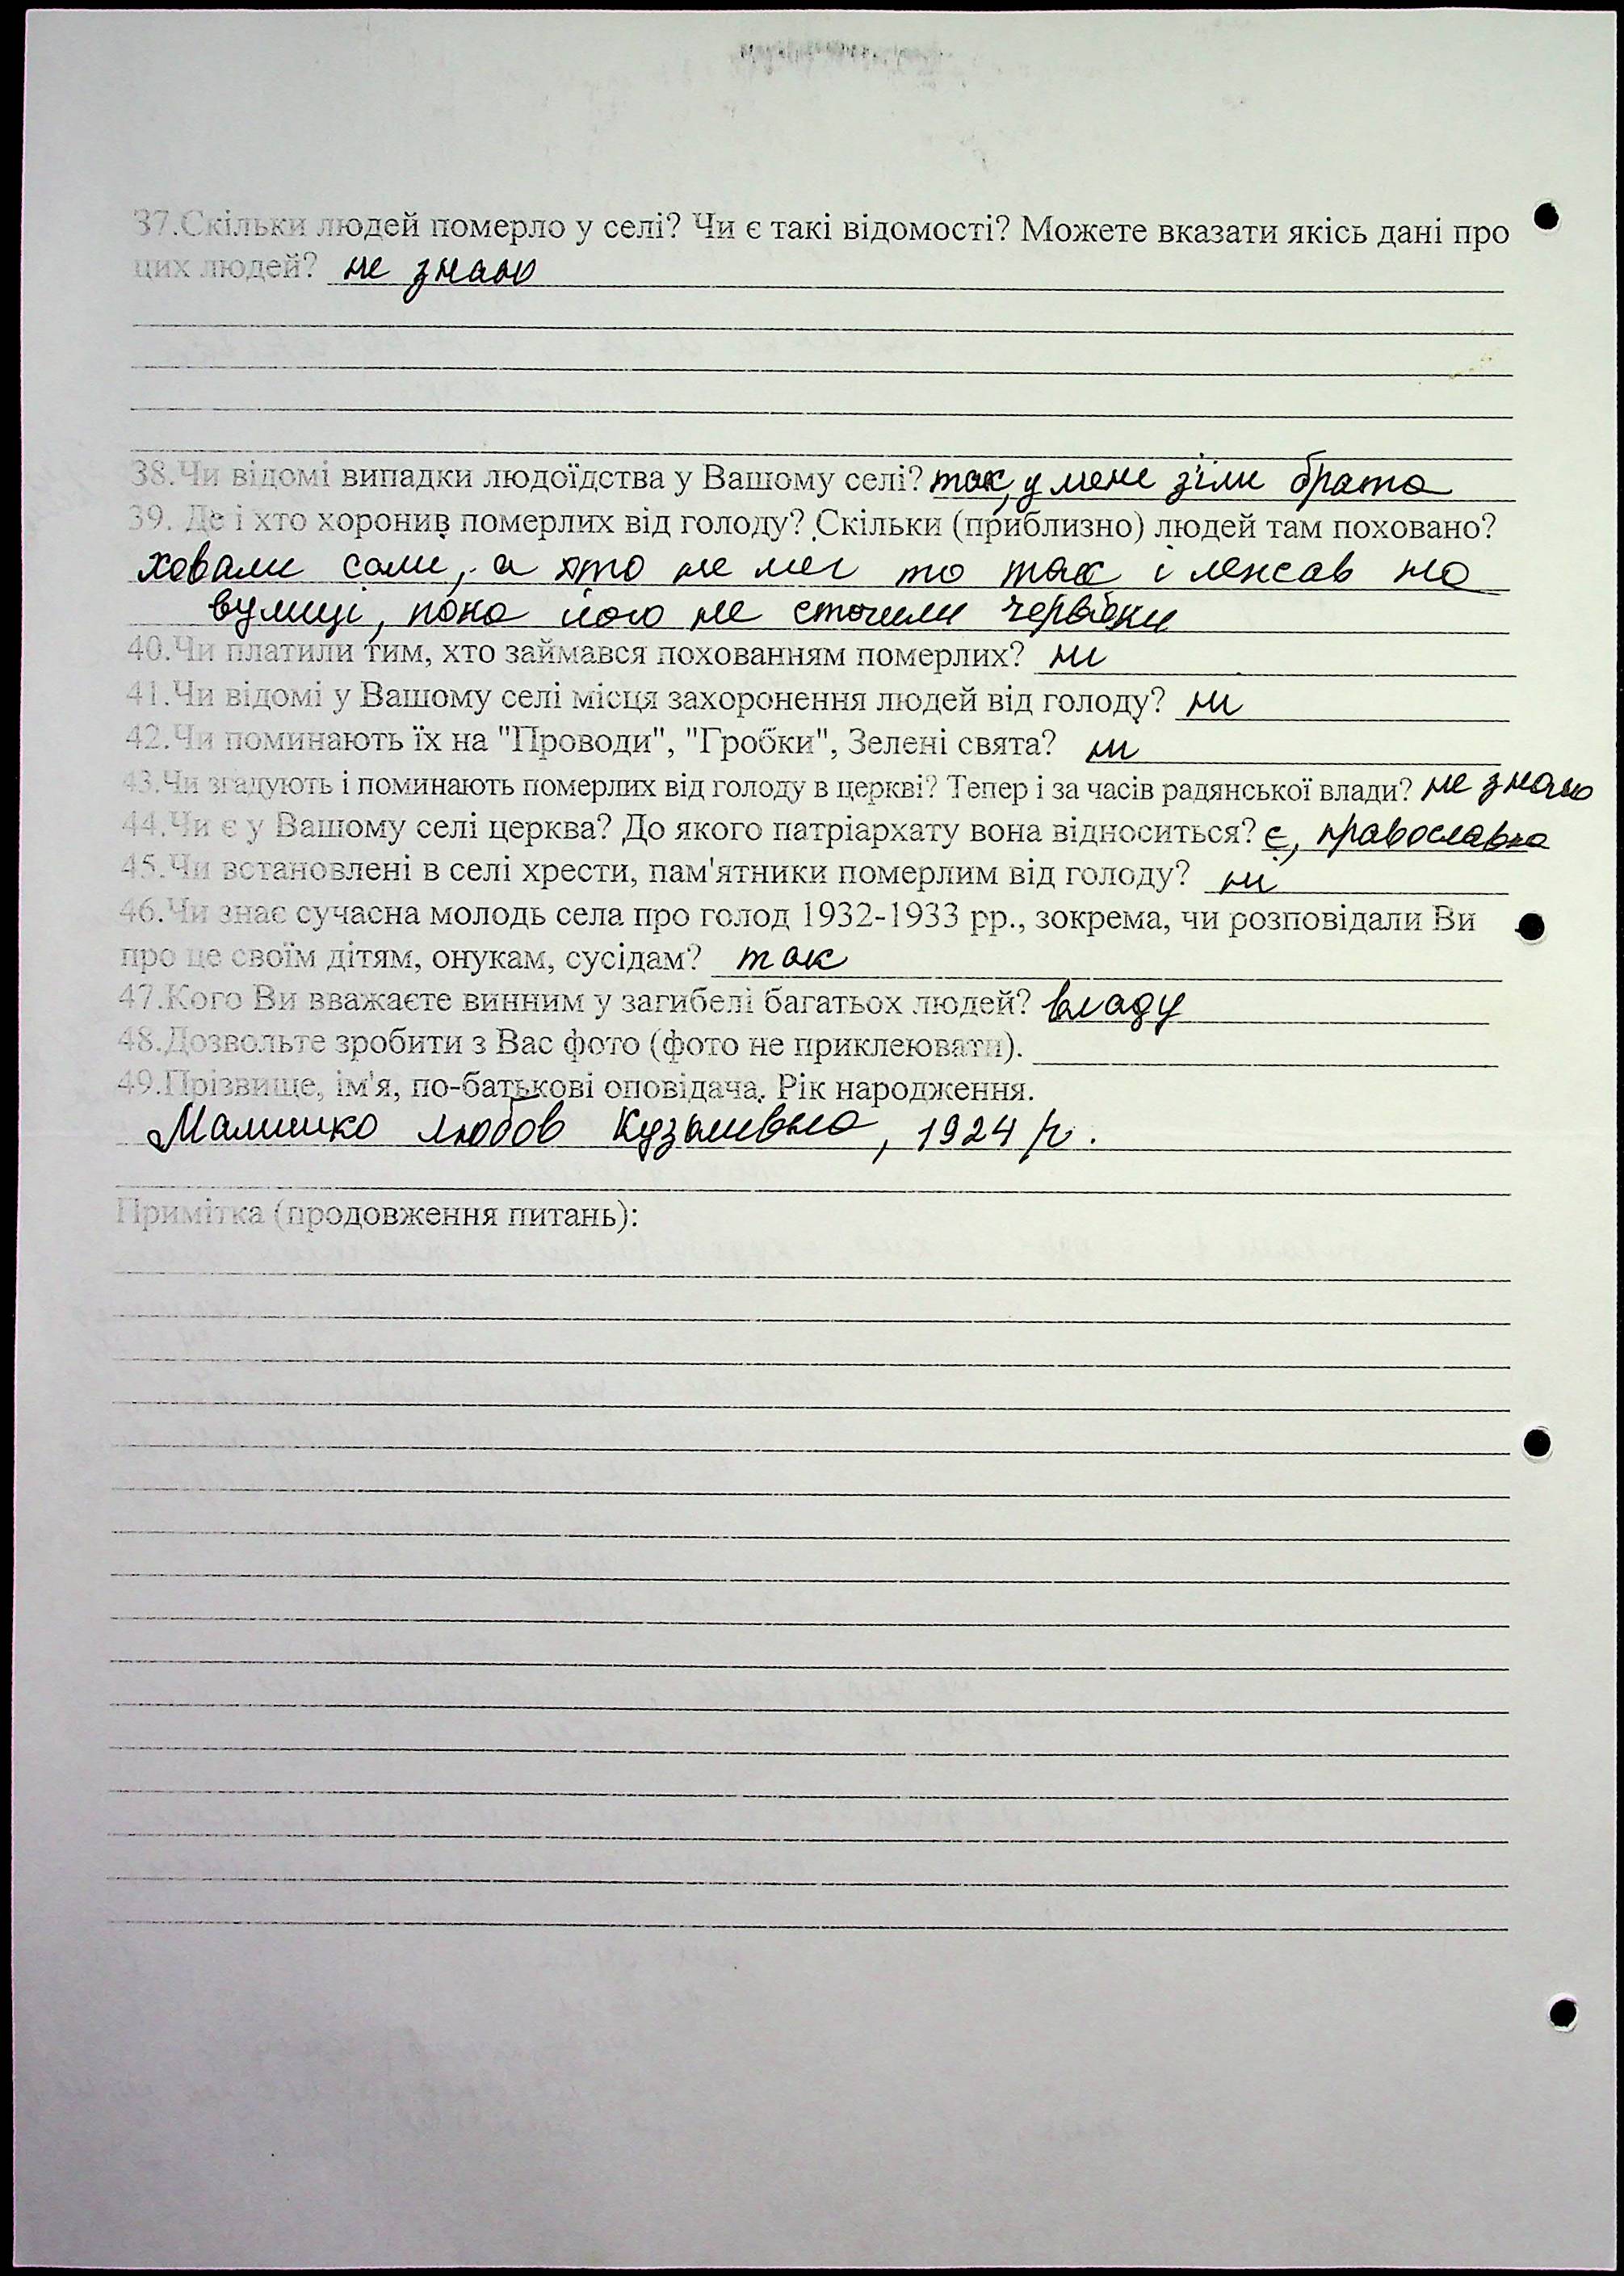 37.Скільки людей померло у селі? Чи є такі відомості? Можете вказати якісь дані про
цих людей? не знаю
38.Чи відомі випадки людоїдства у Вашому селі? так, у мене з'їли брата
39. Де і хто хоронив померлих від голоду? Скільки (приблизно) людей там поховано?
ховали сами, а хто не міг то так і лежав на
вулиці, пока його не сточили черв'яки
40.Чи платили тим, хто займався похованням померлих? ні
41.Чи відомі у Вашому селі місця захоронення людей від голоду? ні
42.Чи поминають їх на "Проводи", "Гробки", Зелені свята? ні
43.Чи згадують і поминають померлих від голоду в церкві? Тепер і за часів радянської влади? не знаю
44.Чи є у Вашому селі церква? До якого патріархату вона відноситься? є, православна
45.Чи встановлені в селі хрести, пам'ятники померлим від голоду? ні
46.Чи знає сучасна молодь села про голод 1932-1933 рр., зокрема, чи розповідали Ви
про це своїм дітям, онукам, сусідам? так
47.Кого Ви вважаєте винним у загибелі багатьох людей? владу
48.Дозвольте зробити з Вас фото (фото не приклеювати).
49.Прізвище, ім'я, по-батькові оповідача. Рік народження.
Малишко Любов Кузьмівна, 1924 р.
Примітка (продовження питань):